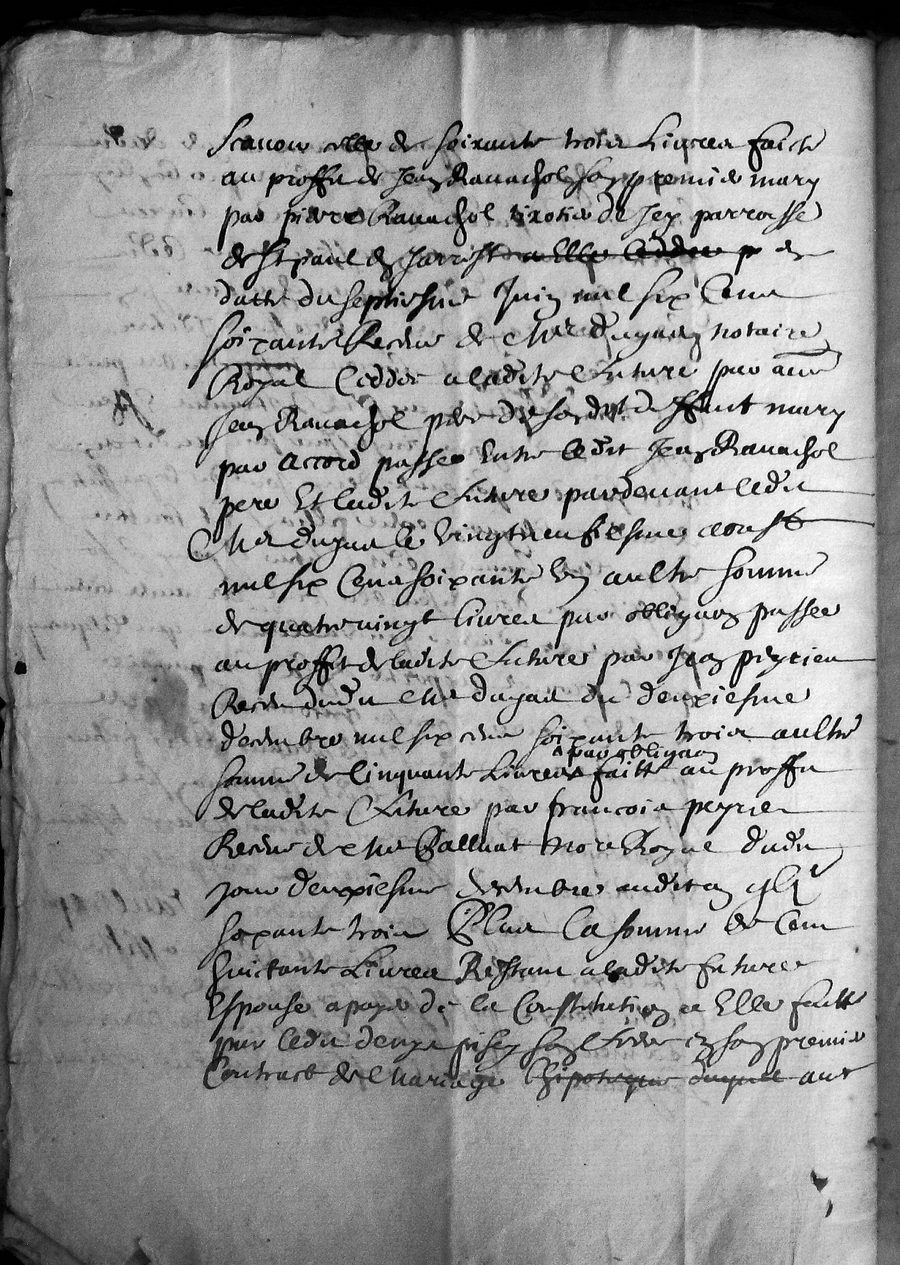 Scavoir celle de soixante trois Livres faicte
au proffit de Jean Ravachol son premier mary
par pierre Ravachol tixotier de Jey parroisse
de St paul en Jarrest a Elle ceddee p en
datte du septiesme Juin mil six Cens
soixante Receue de Me dugua notaire
Royal Ceddee a ladite future par autre
Jean Ravachol pere de sondit deffunt mary
par accord passe Entre ledit Jean Ravachol
pere Et ladite future pardevant ledit
Me dugua le vingtneufiesme aoust
mil six Cens soixante Un aultre somme
de quatre vingt livres par obligaon passee
au proffit de ladite future par Jean peyrieu
Receu dudit Me dugua du deuxiesme
decembre mil six cens soixante trois aultre
somme de Cinquante Livres par obligaon faitte au proffit
de ladite future par francois peyrieu
Receue de Me Balluat notre Royal dudit
jour deuxiesme decembre audit an
soixante trois Plus la somme de Cent
huictante Livres Restant a ladite future
Espouse a payer de la Constitution a Elle faitte
par ledit son frere en son premier
Contract de Mariage hipoteque duquel ant